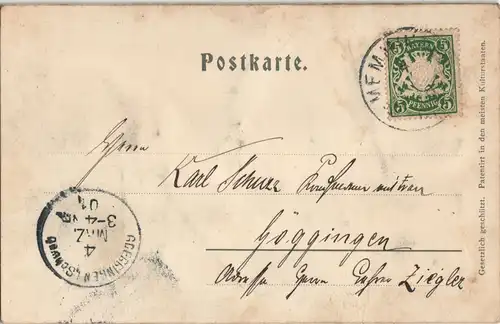 Postkarte.
MEMM
5 BAYERN 5
5 PFENNIG 5
Herrn
Karl
Göggingen
Adresse Herrn Ziegler
GOEGGINGEN (Schwab
4
MRZ
3-4 N
01
Gesetzlich geschützt. Patentirt in den meisten Kulturstaaten.